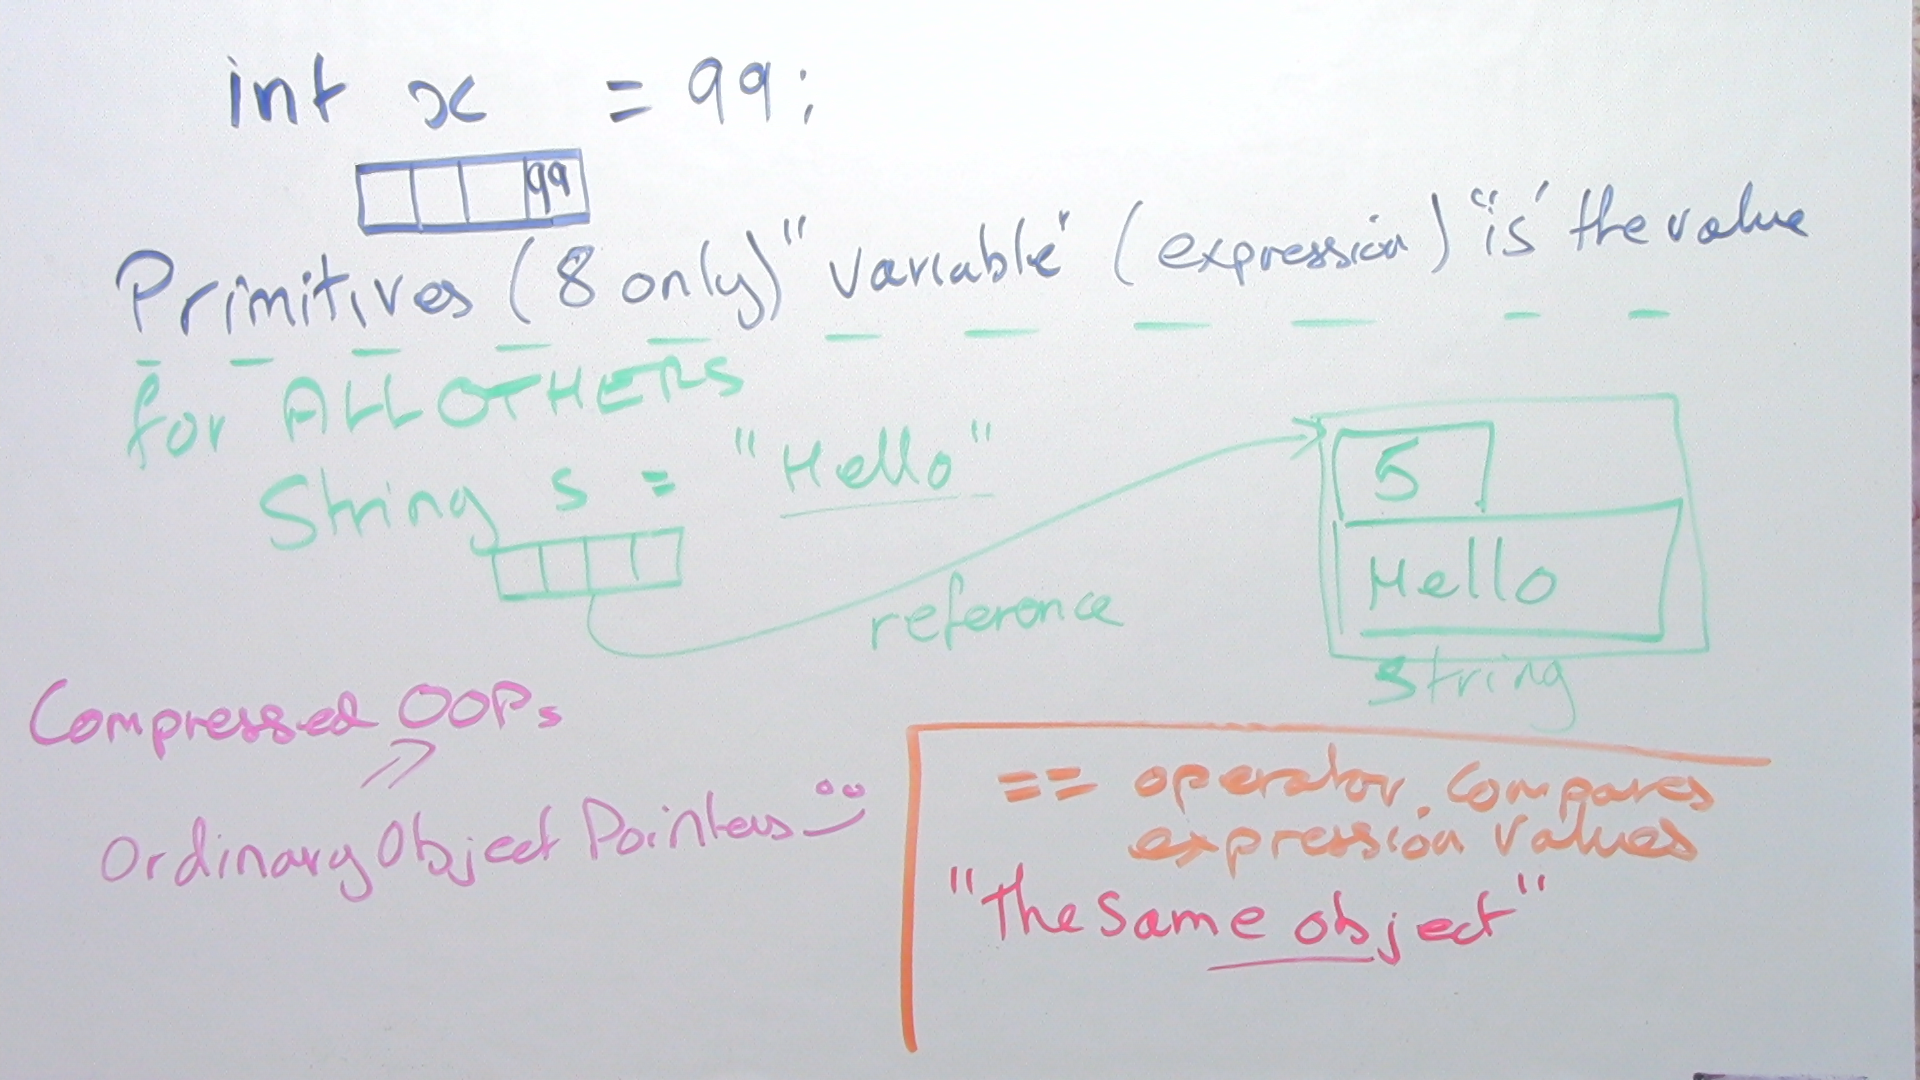 int x = 99;
99
Primitives (8 only) "variable" (expression) "is" the value
for ALL OTHERS
String s = "Hello"
5
Hello
reference
String
Compressed OOPs
Ordinary Object Pointers
== operator. Compares
expression values
"The same object"